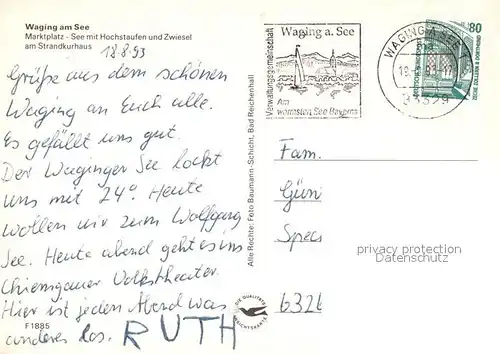 Waging am See
Marktplatz - See mit Hochstaufen und Zwiesel
am Strandkurhaus
18.8.93
Grüße aus dem schönen
Waging an Euch alle.
Es gefällt uns gut.
Der Waginger See lockt
uns mit 24°. Heute
wollen wir zum Wolfgang
See. Heute abend geht es ins
Chiemgauer Volkstheater.
Hier ist jeden Abend was
anderes los. RUTH
F1885
Alle Rechte: Foto Baumann-Schicht, Bad Reichenhall
Verwaltungsgemeinschaft
Waging a. See
Am
wärmsten See Bayerns
WAGING A. SEE
83329
80
DEUTSCHE BUNDESPOST
ZECHE ZOLLERN II DORTMUND
Fam.
Gün
Spes
privacy protection
Datenschutz
6326
DIE QUALITÄTS
ANSICHTSKARTE